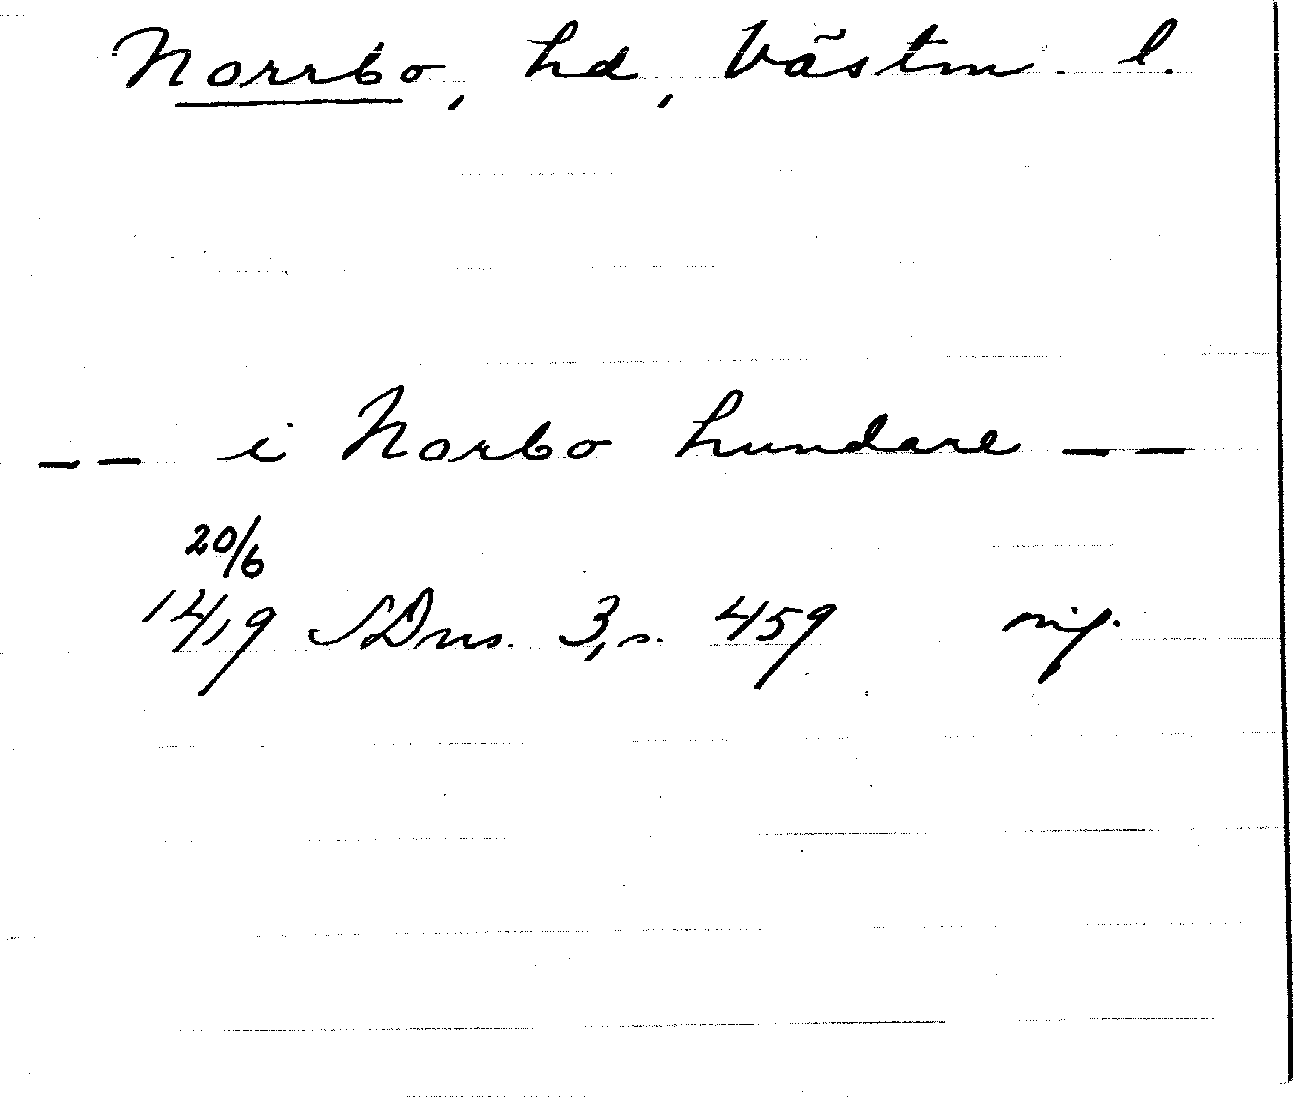 Norrbo, hd, Västm. l.
-- i Norbo hundare --
20/6
1419 SDns. 3, s. 459 or.